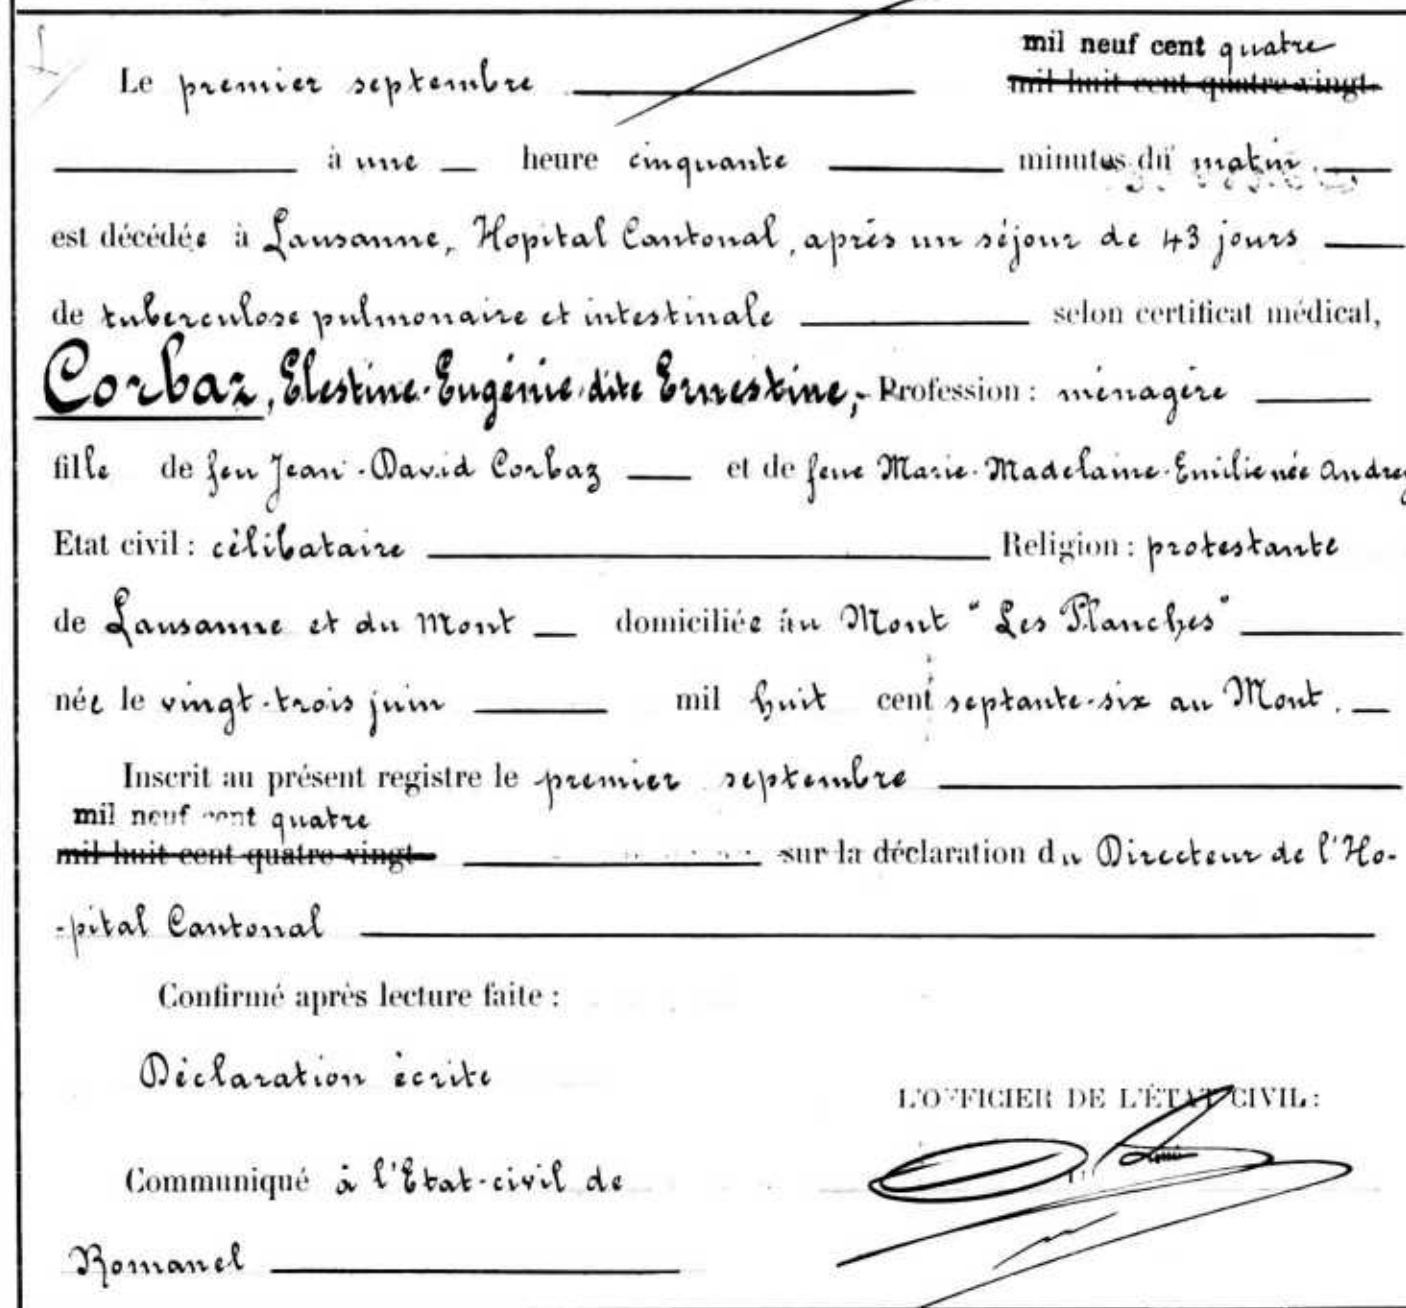 mil neuf cent quatre
Le premier septembre mil huit cent quatre-vingt-
à une heure cinquante minutes du matin.
est décédée à Lausanne, Hopital Cantonal, après un séjour de 43 jours
de tuberculose pulmonaire et intestinale selon certificat médical,
Corbaz, Elestine-Eugénie dite Ernestine, - Profession : ménagère
fille de feu Jean-David Corbaz et de feue Marie-Madelaine-Emilie née Andrey
Etat civil : célibataire Religion : protestante
de Lausanne et du Mont domiciliée au Mont "Les Planches"
née le vingt-trois juin mil huit cent septante-six au Mont.
Inscrit au présent registre le premier septembre
mil neuf cent quatre
mil huit cent quatre-vingt- sur la déclaration du Directeur de l'Ho-
-pital Cantonal
Confirmé après lecture faite :
Déclaration écrite
L'OFFICIER DE L'ÉTAT CIVIL :
Communiqué à l'Etat-civil de
Romanel